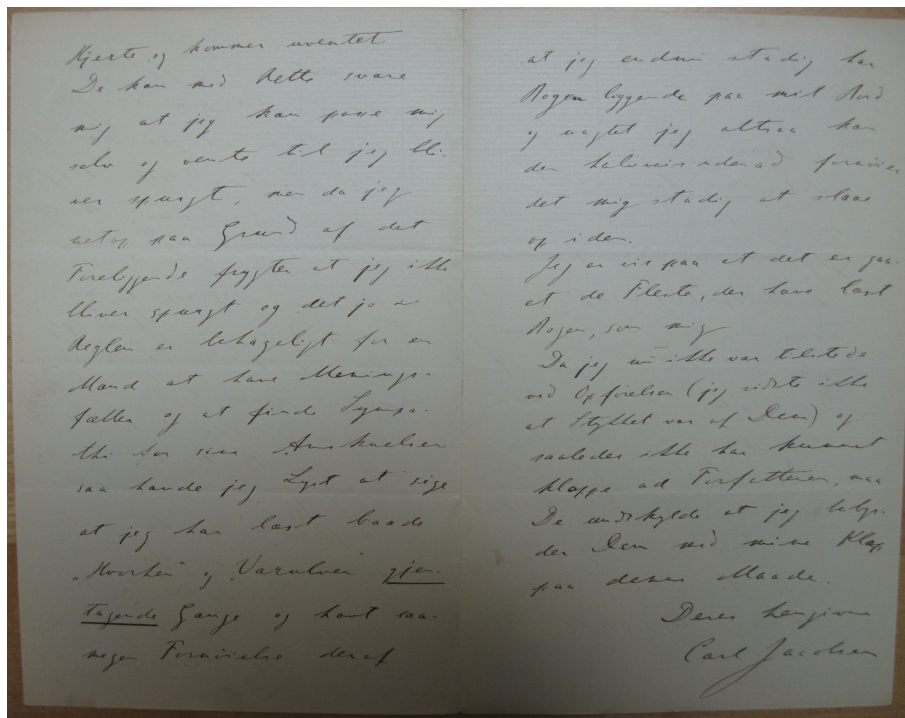 Hjerte og kommer uventet
De kan med Rette svare
mig at jeg kan passe mig
selv og vente til jeg bli-
ver spurgt, men da jeg
netop paa Grund af det
Foreliggende frygter at jeg ikke
bliver spurgt og det jo i
Reglen er behageligt for en
Mand at have Menings-
fæller og at finde Sympa-
thi for sine Anskuelser
saa havde jeg Lyst at sige
at jeg har læst baade
og Varulven gjen-
tagende Gange og havt saa-
megen Fornøielse deraf
at jeg endnu stadig har
Bogen liggende paa mit Bord
og uagtet jeg altsaa kan
den halvveis udenad fornøier
det mig stadig at slaae
op i den.
Jeg er vis paa at det er gaa-
et de Fleste, der have læst
Bogen, som mig
Da jeg nu ikke var tilstede
ved Opførelsen (jeg vidste ikke
at Stykket var af Dem) og
saaledes ikke har kunnet
klappe ad Forfatteren, maa
De undskylde at jeg beby-
der Dem med mine Klap
paa denne Maade.
Deres hengivne
Carl Jacobsen